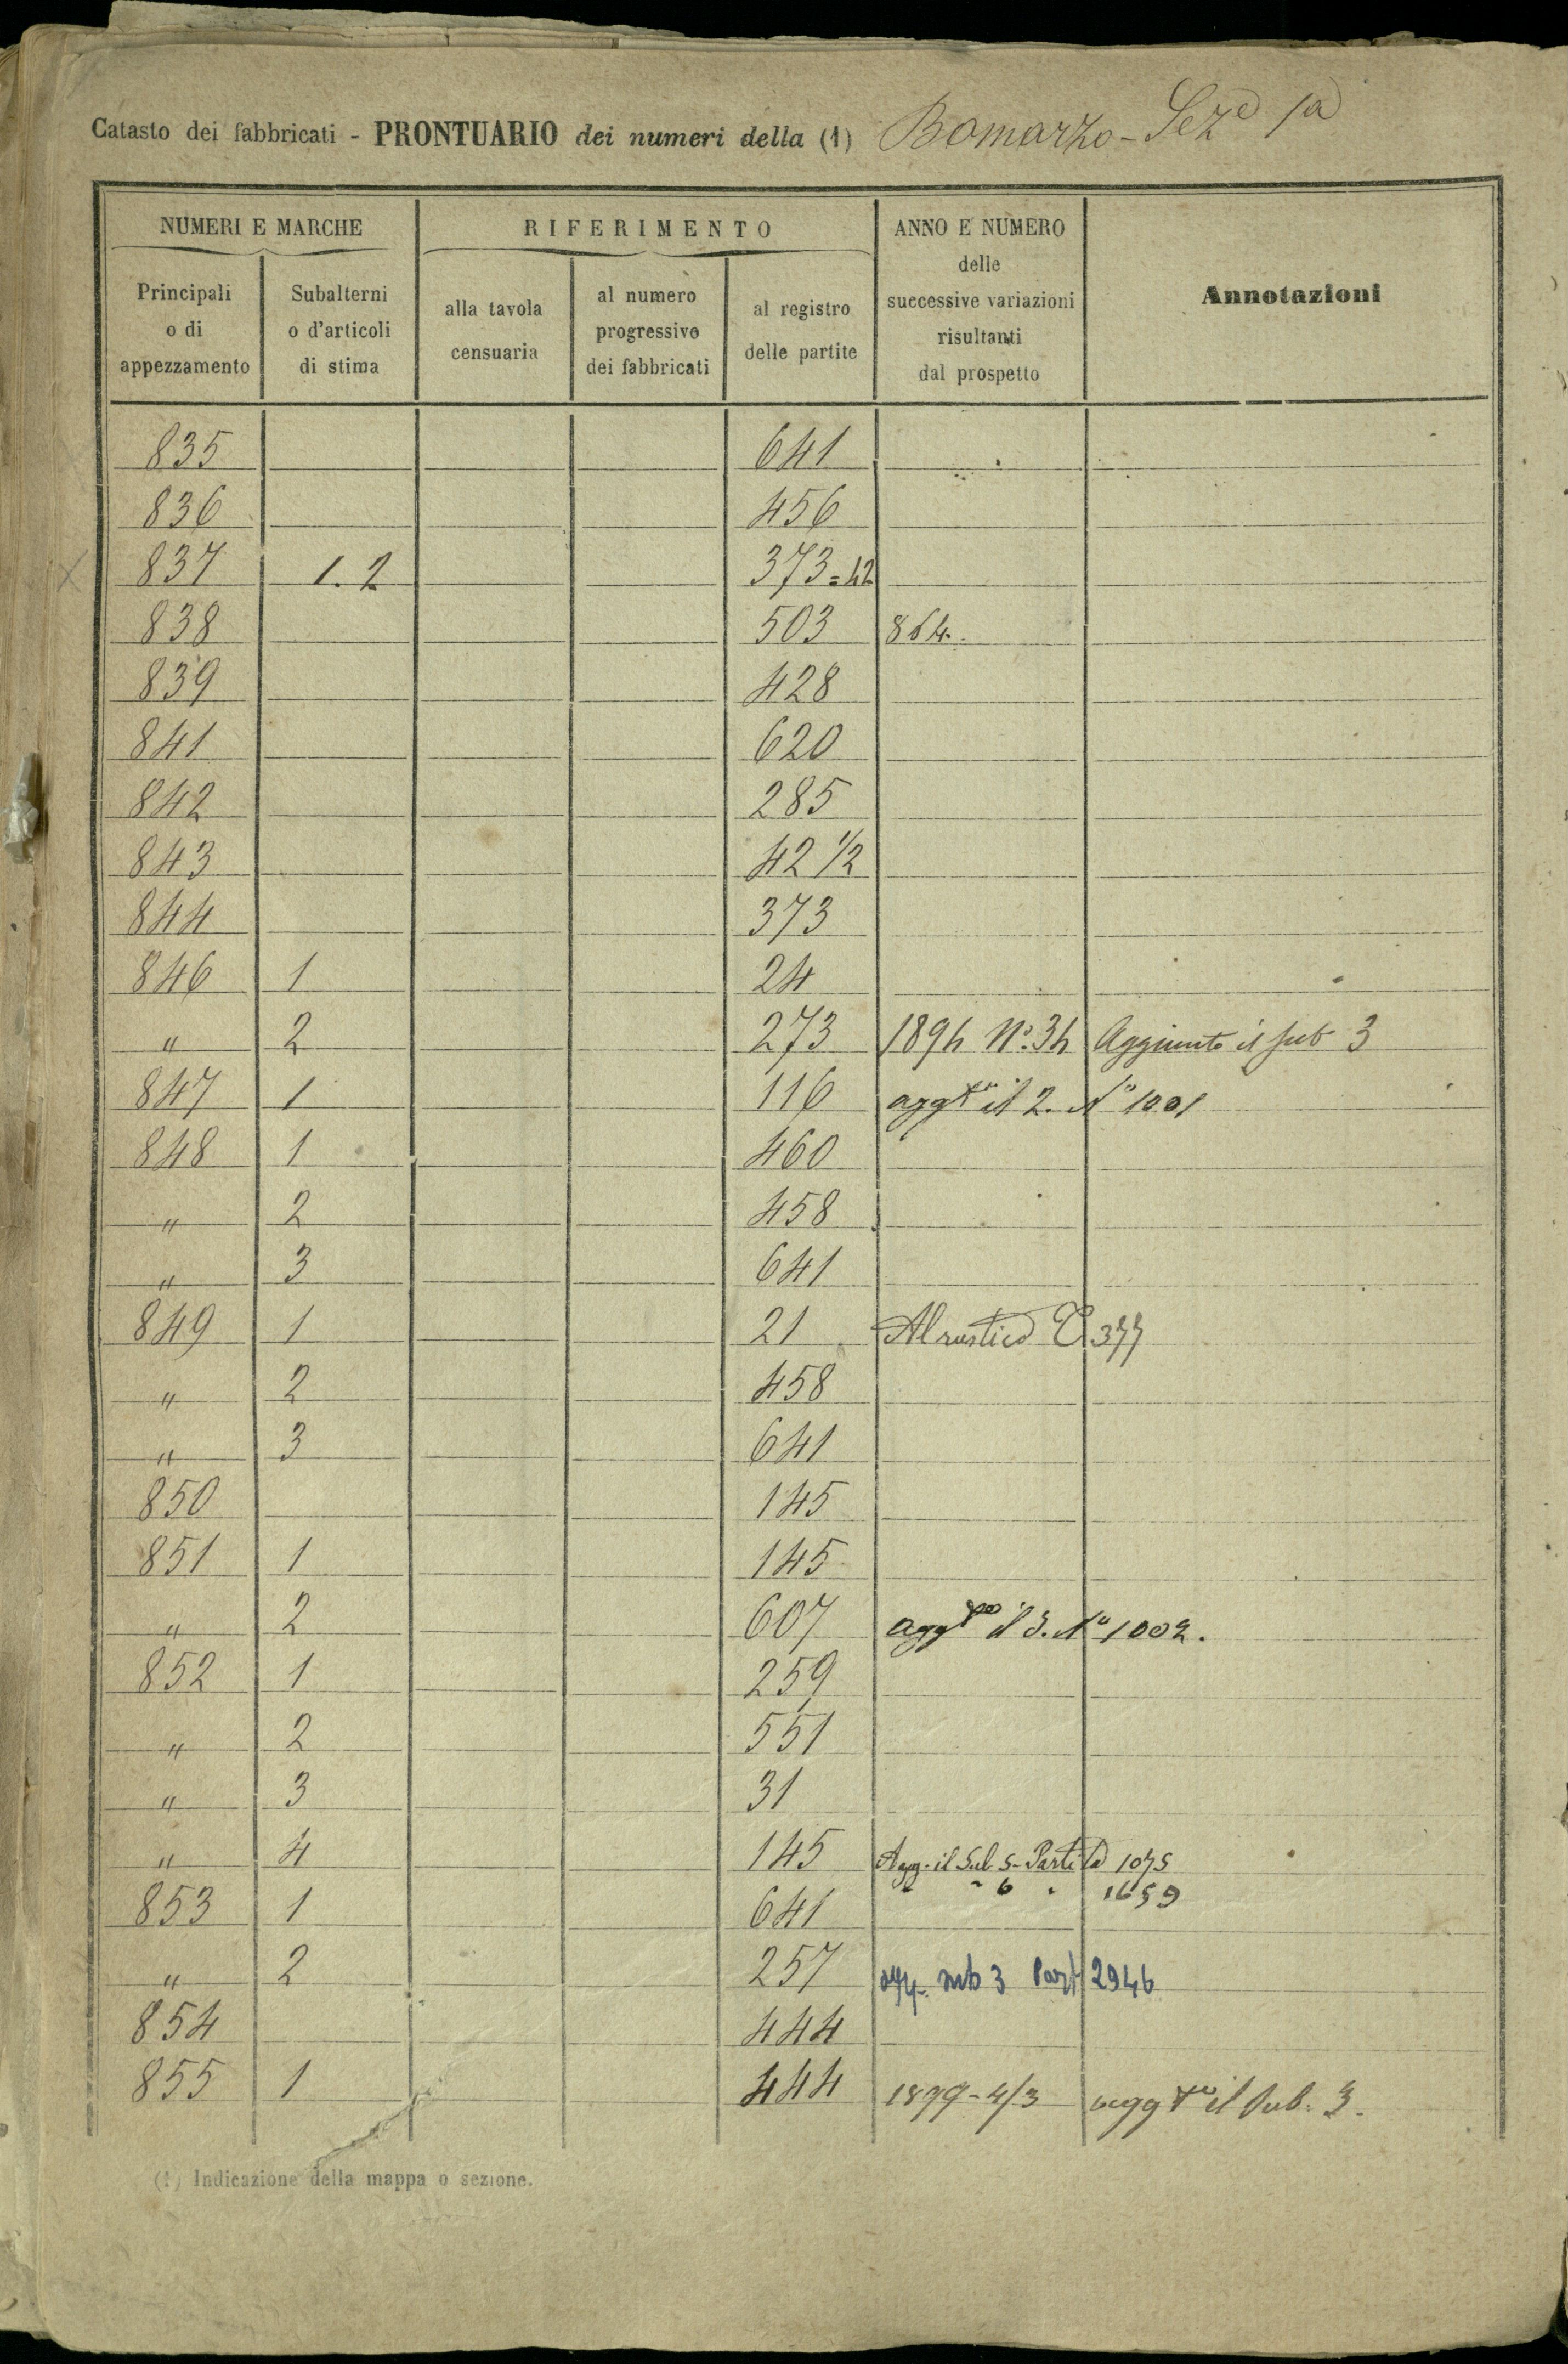 Catasto dei fabbricati - PRONTUARIO dei numeri della (1) Bomarzo - Sez.e 1a
NUMERI E MARCHE RIFERIMENTO ANNO E NUMERO delle successive variazioni risultanti dal prospetto Annotazioni
Principali o di appezzamento Subalterni o d'articoli di stima alla tavola censuaria al numero progressivo dei fabbricati al registro delle partite
835 641
836 456
837 1. 2 373=42
838 503 864.
839 428
841 620
842 285
843 42 1/2
844 373
846 1 24
" 2 273 1894 No. 34 Aggiunto il sub 3
847 1 116 aggto il 2. No 1001
848 1 460
" 2 458
" 3 641
849 1 21 Al rustico 377
" 2 458
" 3 641
850 145
851 1 145
" 2 607 aggto il 3. No 1002.
852 1 259
" 2 551
" 3 31
" 4 145 Agg. il Sub 5 - Partita 1075
" " 6 " 1659
853 1 641
" 2 257 agg. sub 3 Part 2946
854 444
855 1 444 1899-4/3 aggto il sub. 3.
(1) Indicazione della mappa o sezione.